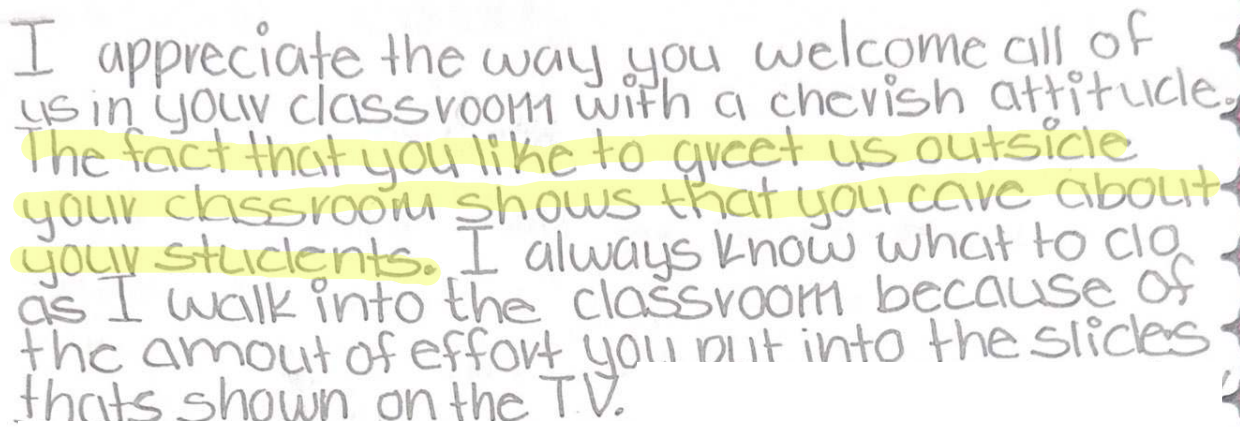 I appreciate the way you welcome all of
us in your classroom with a cherish attitude.
The fact that you like to greet us outside
your classroom shows that you care about
your students. I always know what to do
as I walk into the classroom because of
the amout of effort you put into the slides
thats shown on the TV.